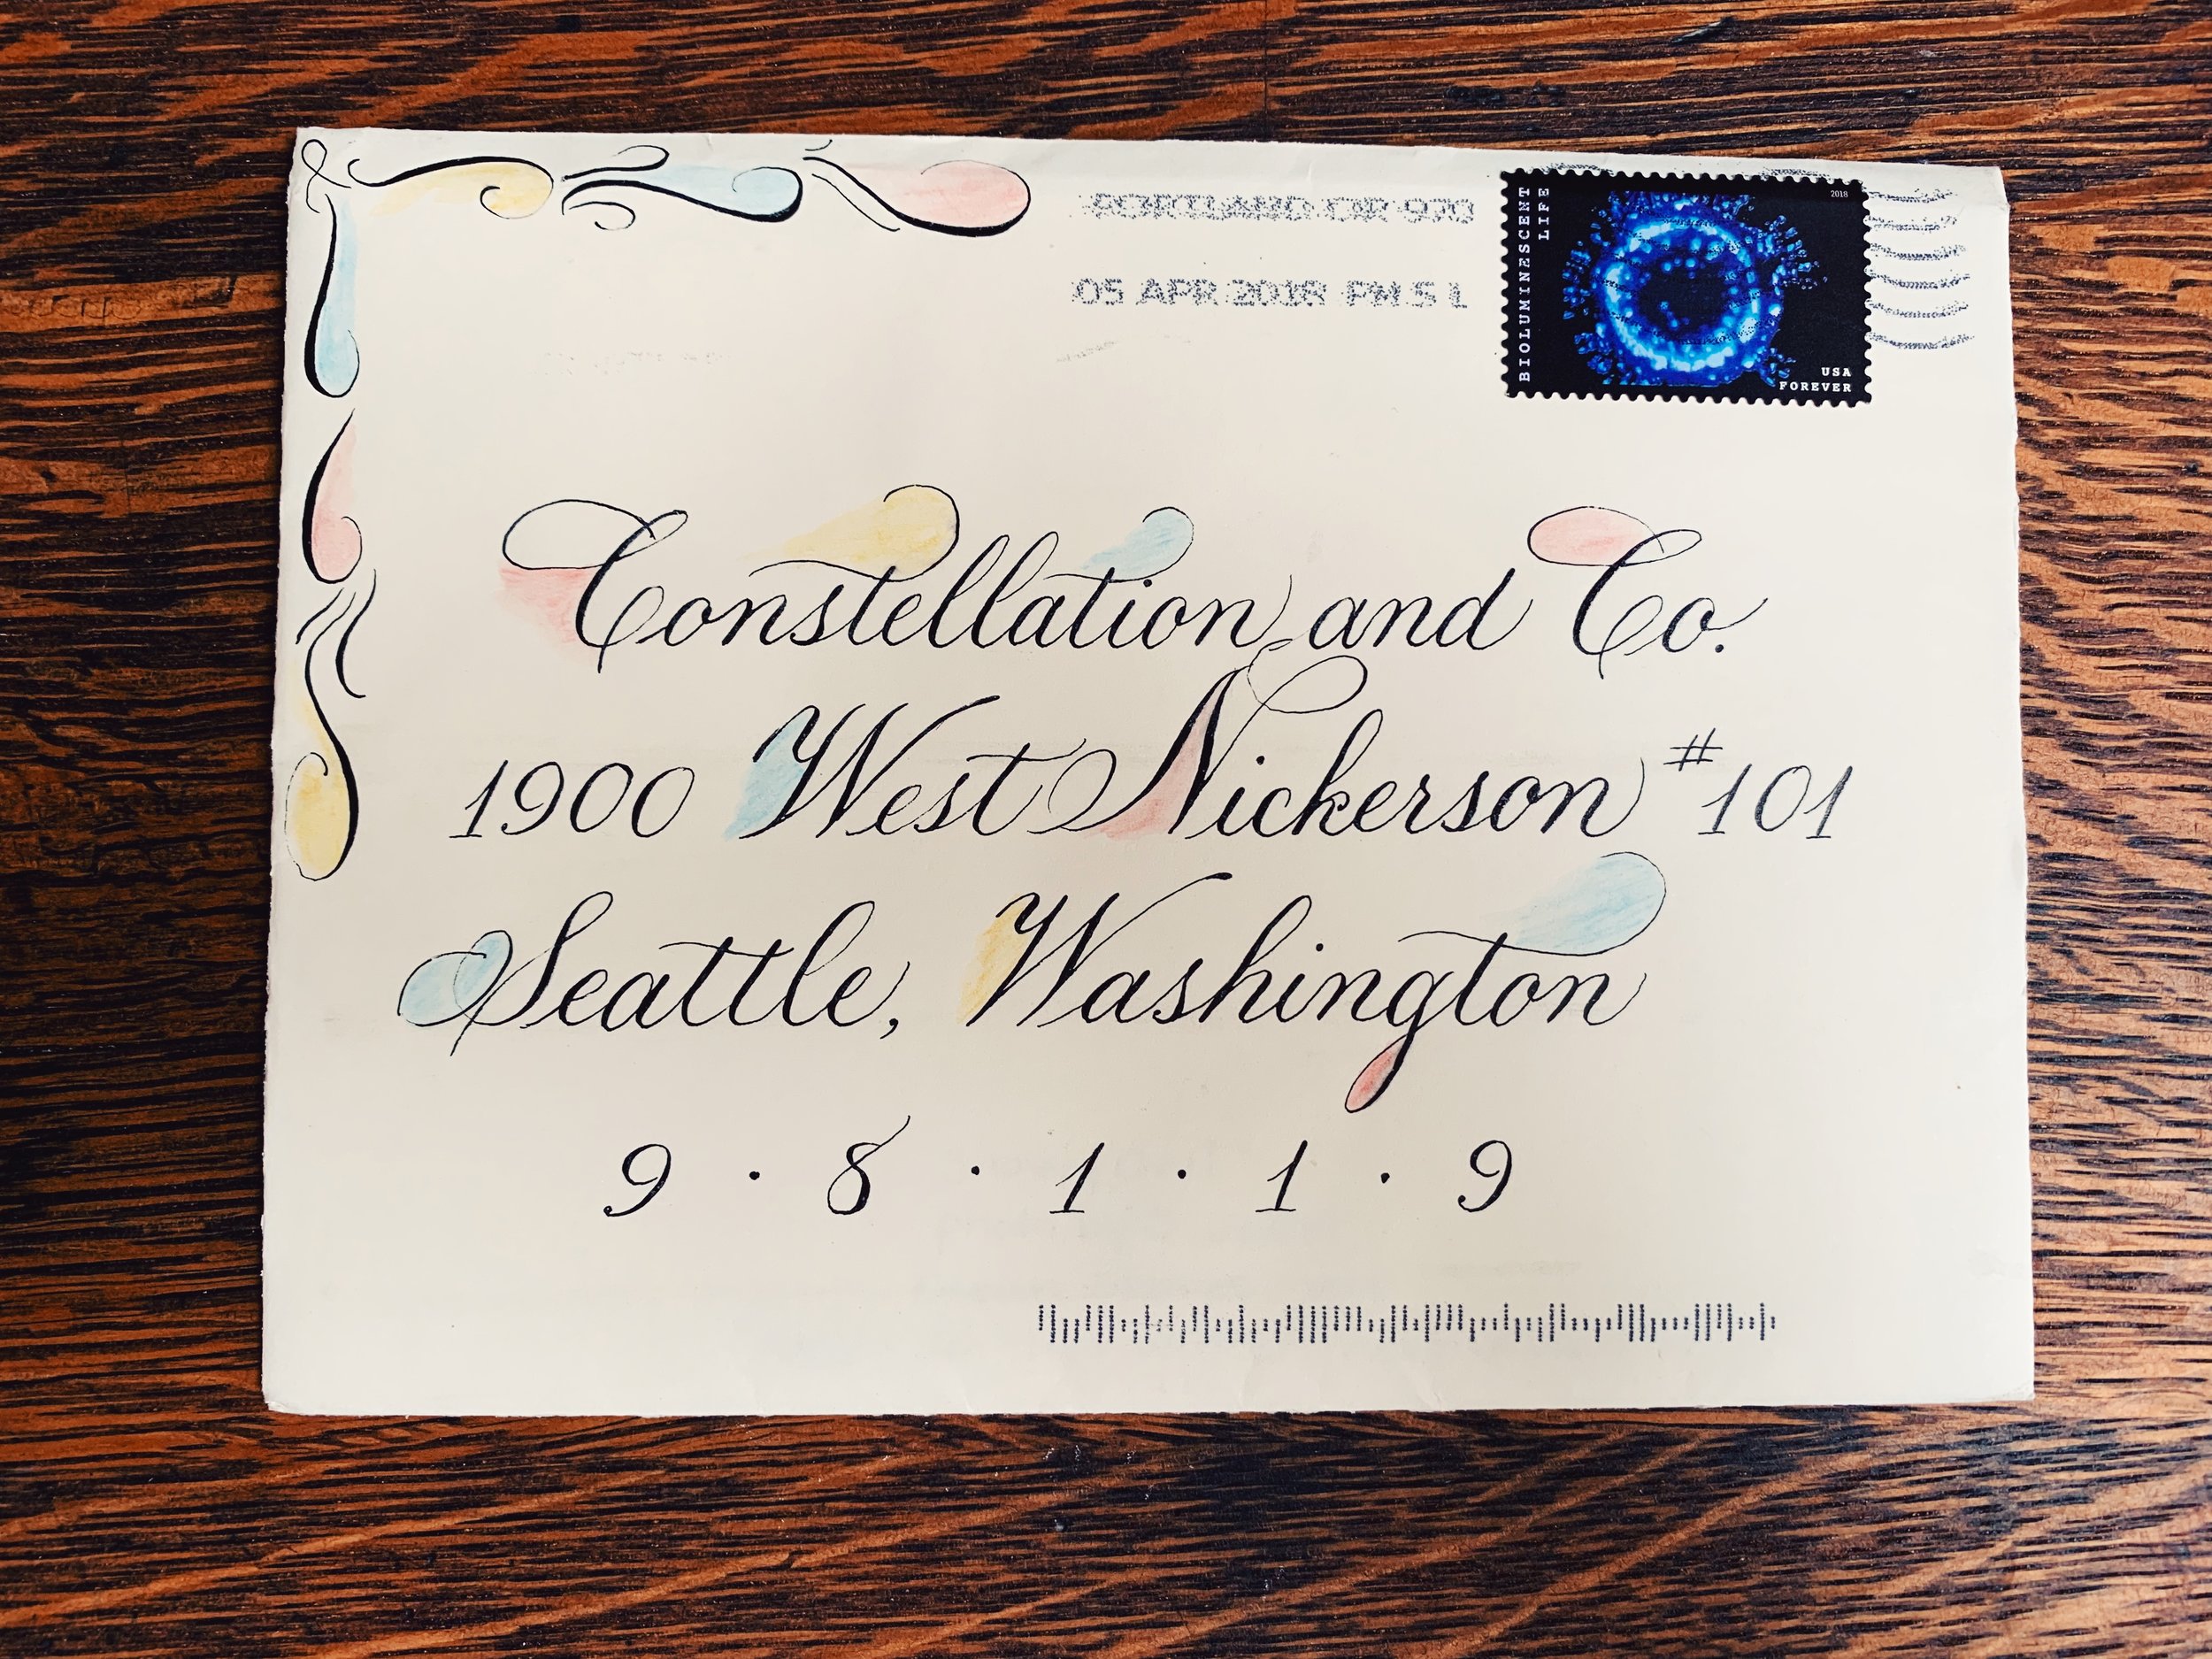 PORTLAND OR 970
05 APR 2018 PM 5 L
BIOLUMINESCENT
LIFE
2018
USA
FOREVER
Constellation and Co.
1900 West Nickerson #101
Seattle, Washington
9 · 8 · 1 · 1 · 9